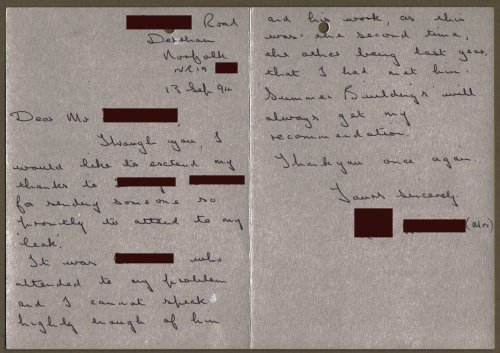 Road
Dereham
Norfolk
NR19
13 Sep 94
Dear Mr ,
Through you, I
would like to extend my
thanks to
for sending someone so
promtly to attend to my
leak.
It was who
attended to my problem
and I cannot speak
highly enough of him
and his work, as this
was the second time,
the other being last year,
that I had met him.
Summer Buildings will
always get my
recommendation.
Thankyou once again.
Yours sincerely
(Mrs)